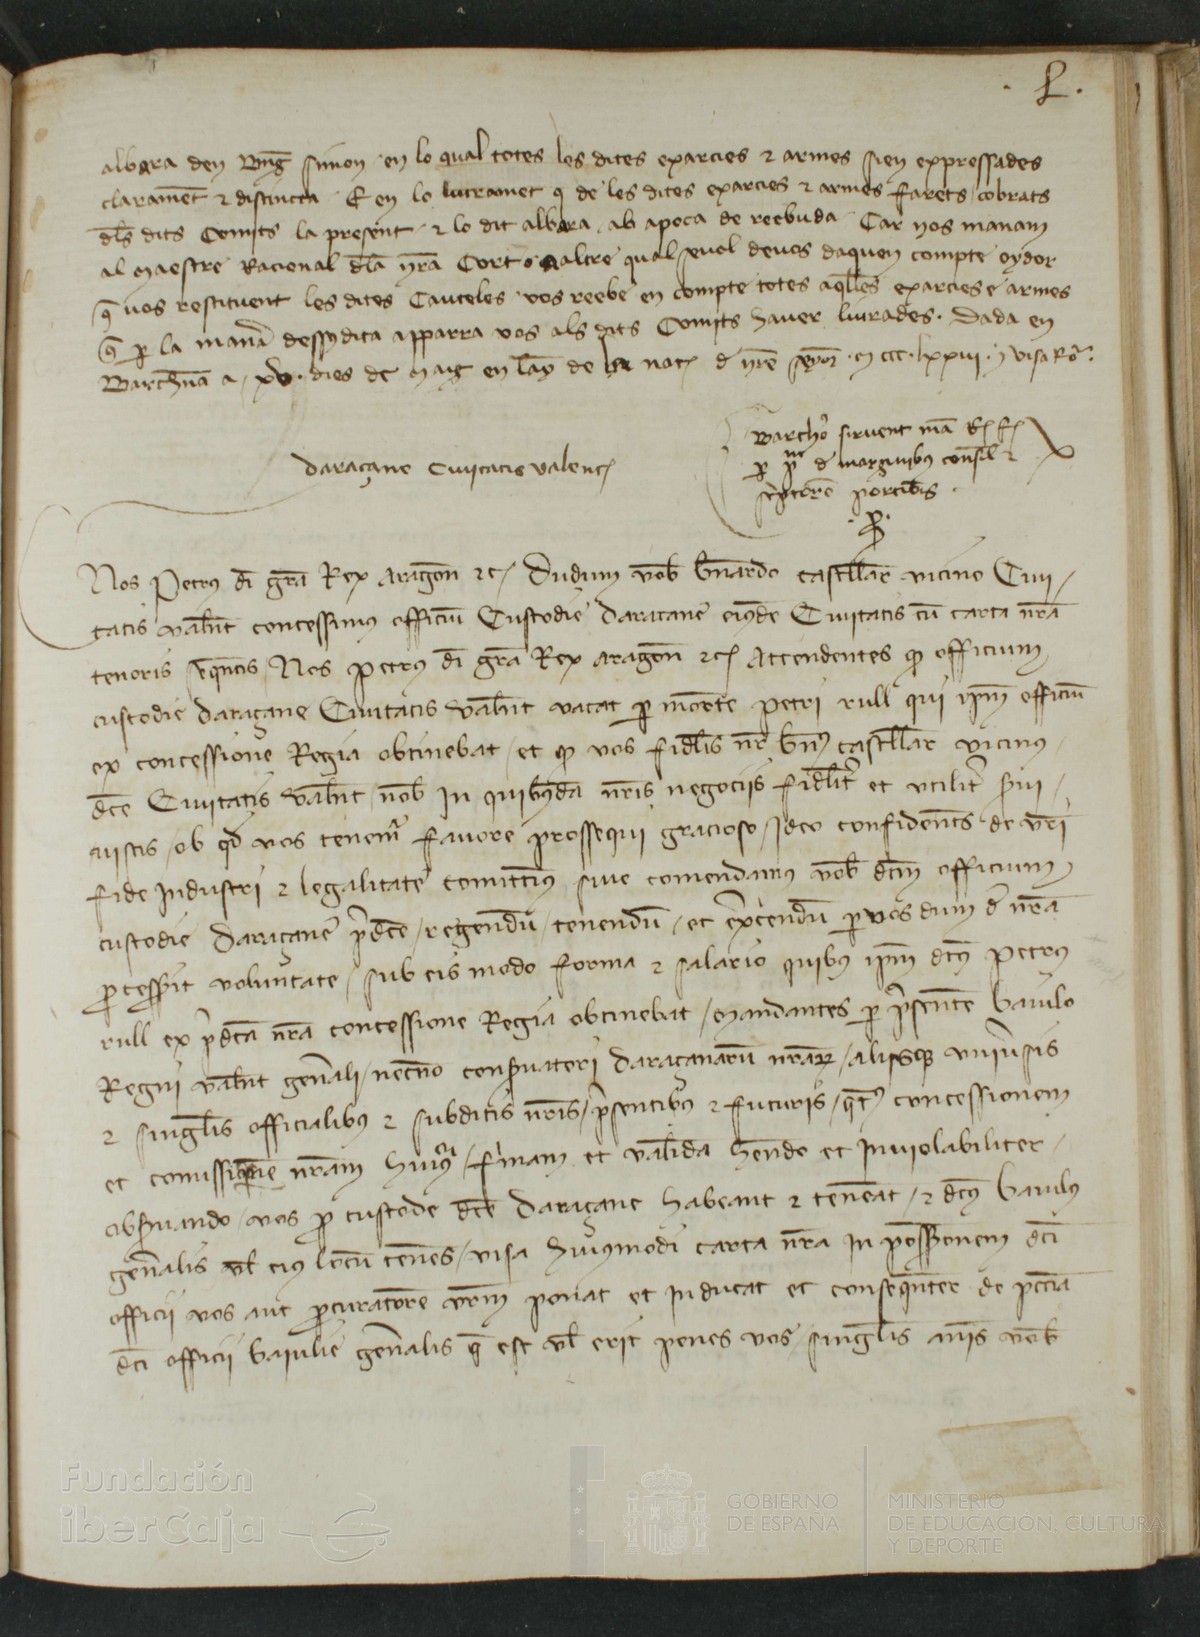 .L.
albara den Bng Simon en lo qual totes les dites exarcies z armes sien expressades
clarament z distincta E en lo liurament q de les dites exarcies z armes farets cobrats
dels dits Comits la present z lo dit albara ab apoca de reebuda Car nos manam
al Maestre Racional dla nra Cort o a altre qual sevol devos daquen compte oydor
q vos restituent les dites Cauteles vos reebe en compte totes aqlles exarcies e armes
q p la mana dessus dita apparra vos als dits Comits haver liurades. Dada en
Barchna a xv dies de Maig en lay de la nat d nre senyor M ccc lxxiii visa Ro.
Bartho sirvent ma R f
p P de marginibus consil z
sptore portibis
daraçane Civitatis Valent
.p.
Nos Petrus di gra Rex Aragon etc Dudum vob Bnardo castllar vicino Civi
tatis Valent concessimus officiu Custodie daraçane eiusde Civitatis cu carta nra
tenoris seqntis Nos Petrus di gra Rex Aragon etc Attendentes q officium
custodie daraçane Civitatis Valent vacat p morte Petri rull qui ipm officiu
ex concessione Regia obtinebat et q vos fidelis nr Bns castllar vicinus
dce Civitatis Valent nob in quibusda nris negociis fidelit et utilit servi
vistis ob qd vos tenem favore prossequi gracioso Ideo confidents de vri
fide industri z legalitate comittimus sive comendamus vob dcm officium
custodie daraçane pdce regendu tenendu et exercendu p vos dum d nra
pcesserit voluntate sub eis modo forma z salario quibus ipm dcus Petrus
rull ex pdca nra concessione Regia obtinebat Mandantes p psente baiulo
Regni Valent genali necno conservatori daraçanaru nrar aliisq universis
z singlis officialibus z subditis nris psentibus z futuris qts concessionem
et comissione nram huius firmam et valida hendo et inviolabiliter
observando vos p custode dce daraçane habeant z teneat z dcus baiulus
genalis vl eius locu tenes visa huiusmodi carta nra in possonem dci
officii vos aut pcuratore vrm ponat et inducat et consequenter de pccia
dci officii baiulie genalis q est vl erit penes vos singlis anis vob
Fundación
iberCaja
GOBIERNO
DE ESPAÑA
MINISTERIO
DE EDUCACIÓN, CULTURA
Y DEPORTE